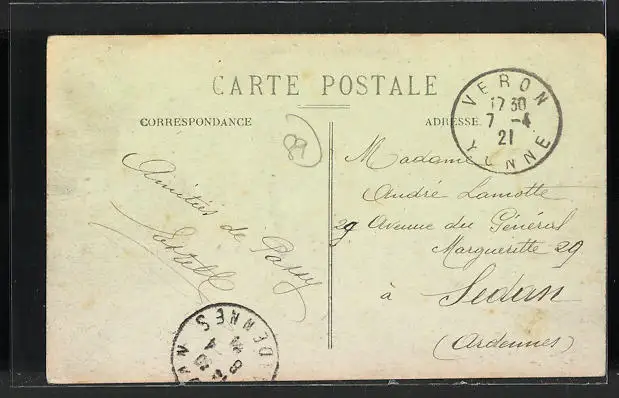 CARTE POSTALE
CORRESPONDANCE
ADRESSE
VERON
17 30
7 -4
21
YONNE
89
Amitiés de Passy
Estelle
Madame
André Lamotte
29 Avenue du Général
Margueritte 29
à Sedan
(Ardennes)